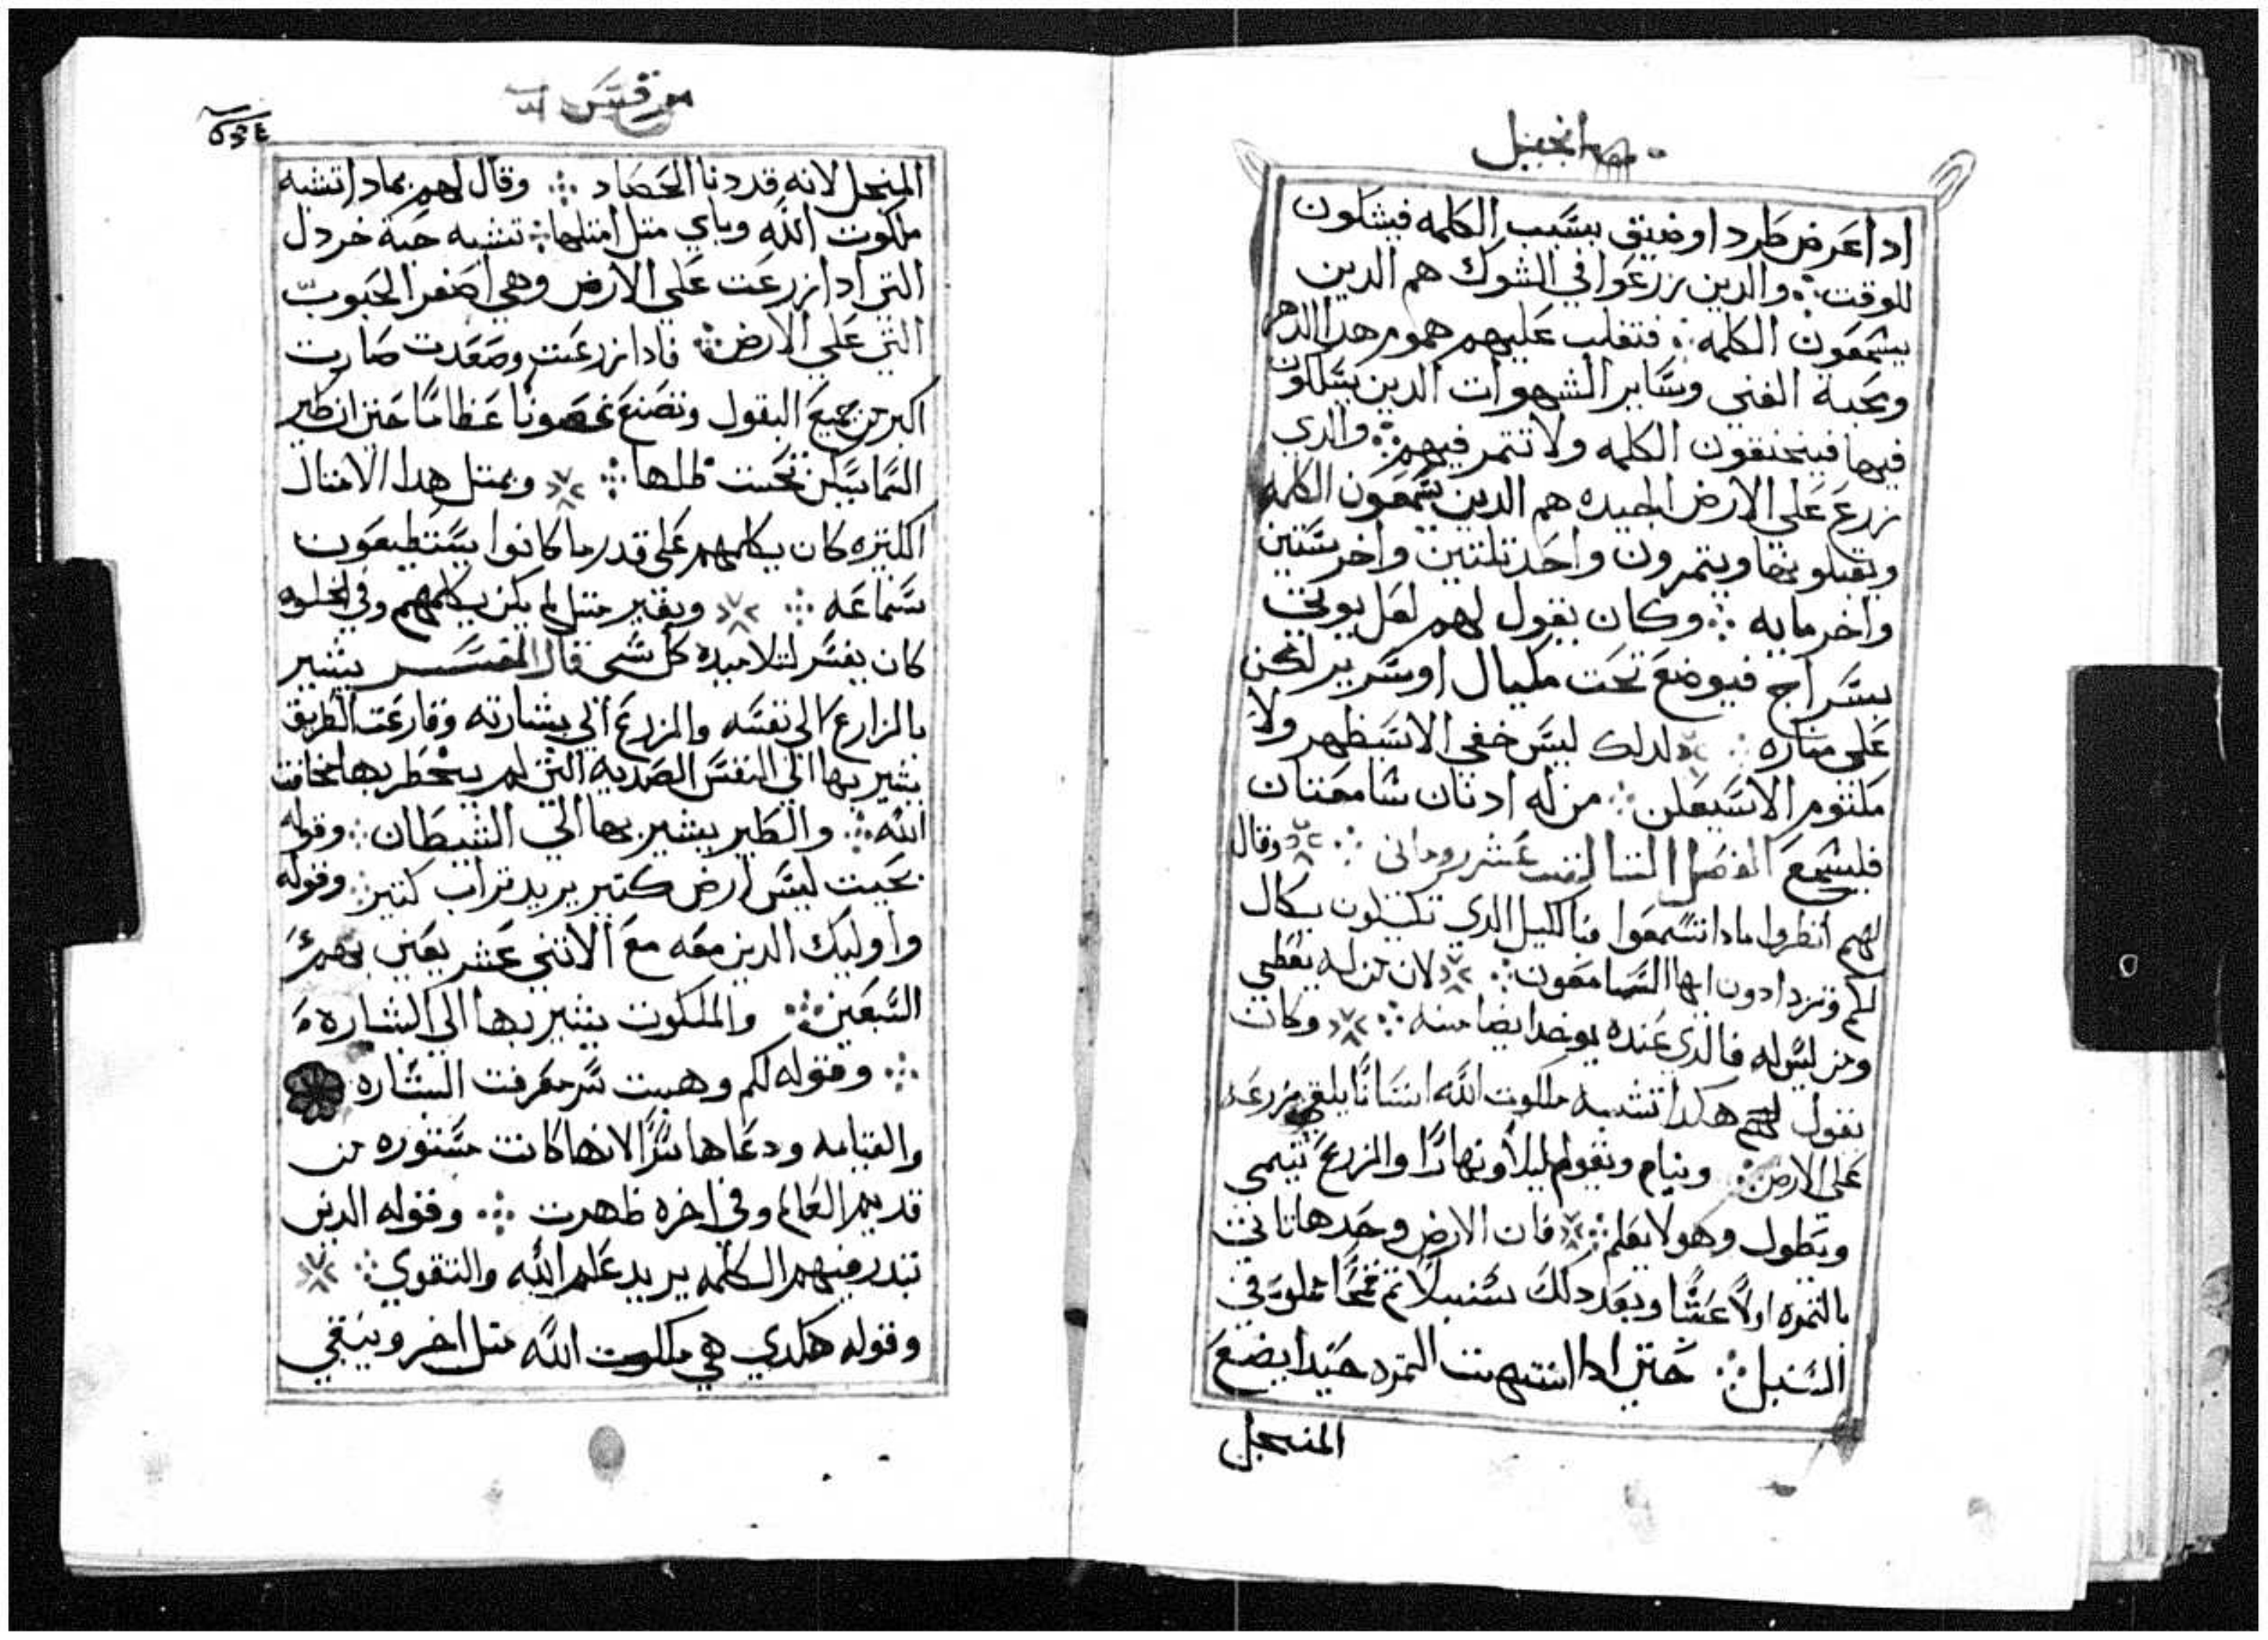 انجيل
ادا عرض طرد او ضيق بسبب الكلمه فيشكون
للوقت والدين زرعوا في الشوك هم الدين
يسمعون الكلمه فتغلب عليهم هموم هدا الدهر
ومحبة الغني وساير الشهوات الدين يسلكون
فيها فيختنقون الكلمه ولا تتمر فيهم والدي
زرع علي الارض الجيده هم الدين يسمعون الكلمه
ويقبلونها ويتمرون واحد تلتين واخر ستين
واخر مايه وكان يقول لهم لعل يوتي
بسراج فيوضع تحت مكيال او سرير لكن
علي مناره لدلك ليس خفي الا سيظهر ولا
مكتوم الا سيعلن من له ادنان سامعتان
فليسمع الفصل عشر روماني وقال
لهم انظروا مادا تسمعوا فبالكيل الدي تكيلون يكال
لكم وتزدادون ايها السامعون لان من له يعطي
ومن ليس له فالدي عنده يوخد ايضا منه وكان
يقول لهم هكدا تشبه ملكوت الله انسانا يلقي زرعه
علي الارض وينام ويقوم ليلا ونهارا والزرع ينمي
ويطول وهو لا يعلم فان الارض وحدها تاتي
بالتمره اولا عشبا وبعد دلك سنبلا تم قمحا مملو في
السنبل حتي ادا انتهت التمره حيندا يضع
المنجل
مرقس
المنجل لانه قد دنا الحصاد وقال لهم بمادا تشبه
ملكوت الله وباي متل امتلها تشبه حبة خردل
التي ادا زرعت علي الارض وهي اصغر الحبوب
التي علي الارض فادا زرعت وصعدت صارت
اكبر من جميع البقول وتصنع غصونا عظاما حتي ان طير
السما يسكن تحت ظلها وبمتل هدا الامتال
الكتيره كان يكلمهم علي قدر ما كانوا يستطيعون
سماعه وبغير متل لم يكن يكلمهم وفي الخلوه
كان يفسر لتلاميده كل شي قال المفسر يشير
بالزارع الي نفسه والزرع الي بشارته وقارعت الطريق
يشير بها الي النفس الصديه التي لم يخطر بها مخافت
الله والطير يشير بها الي الشيطان وقوله
بحيت ليس ارض كتير يريد تراب كتير وقوله
واوليك الدين معه مع الاتني عشر يعني بهم
السبعين والملكوت يشير بها الي البشاره
وقوله لكم وهبت سر معرفت البشاره
والقيامه ودعاها سرا لانها كانت مستوره من
قديم العالم وفي اخره ظهرت وقوله الدين
تبدر فيهم الكلمه يريد علم الله والتقوي
وقوله هكدي هي ملكوت الله متل اخر ويبقي